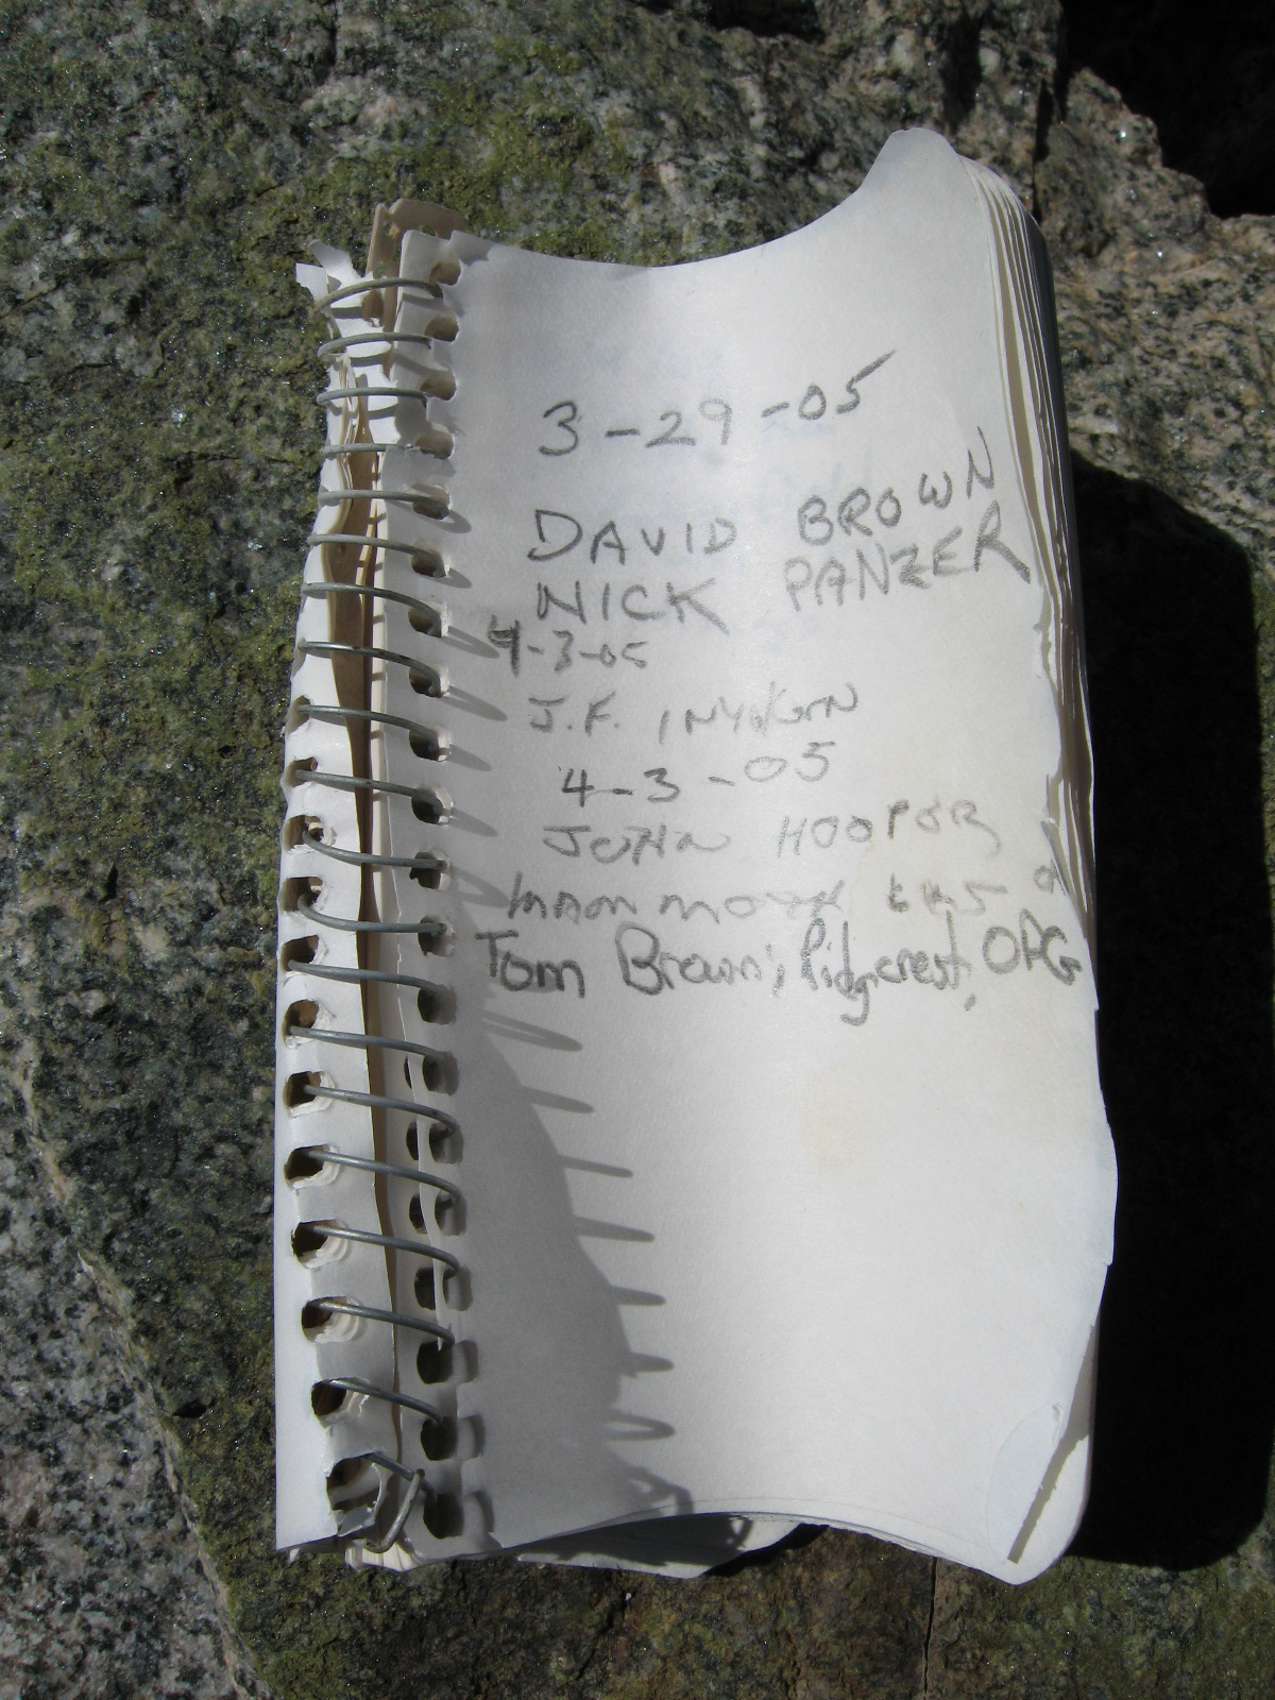 3-29-05
DAVID BROWN
NICK PANZER
4-3-05
J.F. INYOKERN
4-3-05
JOHN HOOPER
mammoth
Tom Brown; Ridgecrest, OAG